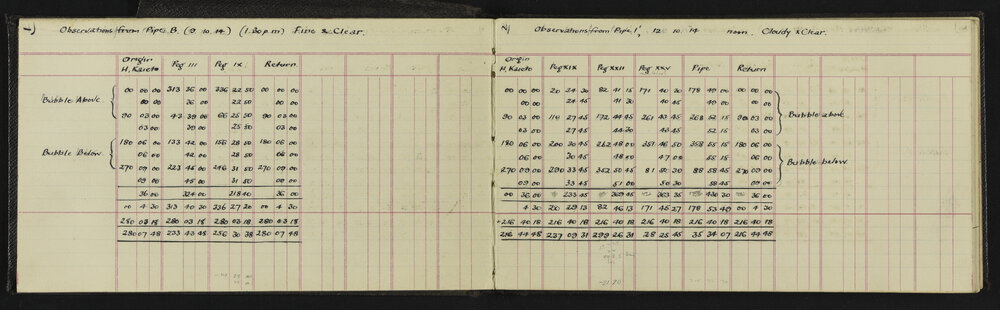 Observations from Pipe B. (9. 10. 14) (1.30 p.m) Fine & Clear.
Origin H. Kaieto Peg III Peg IX Return
00 00 00 313 36 00 336 22 50 00 00 00
00 00 36 00 22 50 00 00
Bubble Above
90 03 00 43 39 00 66 25 50 90 03 00
03 00 39 00 25 50 03 00
180 06 00 133 42 00 156 28 50 180 06 00
Bubble Below
06 00 42 00 28 50 06 00
270 09 00 223 45 00 246 31 50 270 09 00
09 00 45 00 31 50 09 00
36 00 324 00 218 40 36 00
00 4 30 313 40 30 336 27 20 00 4 30
280 03 18 280 03 18 280 03 18 280 03 18
280 07 48 233 43 48 256 30 38 280 07 48
Observations from Pipe 1, 12 10. 14 noon. Cloudy & Clear.
Origin H. Kaieto Peg XIX Peg XXII Peg XXV Pipe Return
00 00 00 20 24 30 82 41 15 171 40 30 178 49 00 00 00 00
00 00 24 45 41 30 40 45 49 00 00 00
90 03 00 114 27 45 172 44 45 261 43 45 268 52 15 90 03 00
Bubble above
03 00 27 45 44 30 43 45 52 15 03 00
180 06 00 200 30 45 262 48 00 351 46 50 358 55 15 180 06 00
06 00 30 45 48 00 47 00 55 15 06 00
Bubble below
270 09 00 290 33 45 352 50 45 81 50 30 88 58 45 270 09 00
09 00 33 45 51 00 50 30 58 45 09 00
00 36 00 233 45 369 45 363 35 430 30 36 00
4 30 20 29 13 82 46 13 171 45 27 178 53 49 00 4 30
216 40 18 216 40 18 216 40 18 216 40 18 216 40 18 216 40 18
216 44 48 237 09 31 299 26 31 28 25 45 35 34 07 216 44 48